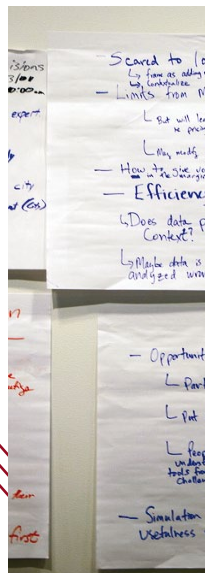 isions
3/01
0:00am
expert
city
- Scared to lo
↳ frame as adding
↳ Contextualize
- Limits from M
↳ But will lea
re pricin
↳ May modify
- How to give vo
in the margin
- Efficienc
↳ Does data p
Context?
↳ Maybe data is
analyzed wron
- Opportunit
↳ Part
↳ Put
↳ Peop
underst
tools fro
challen
- Simulation
usefulness
their
first